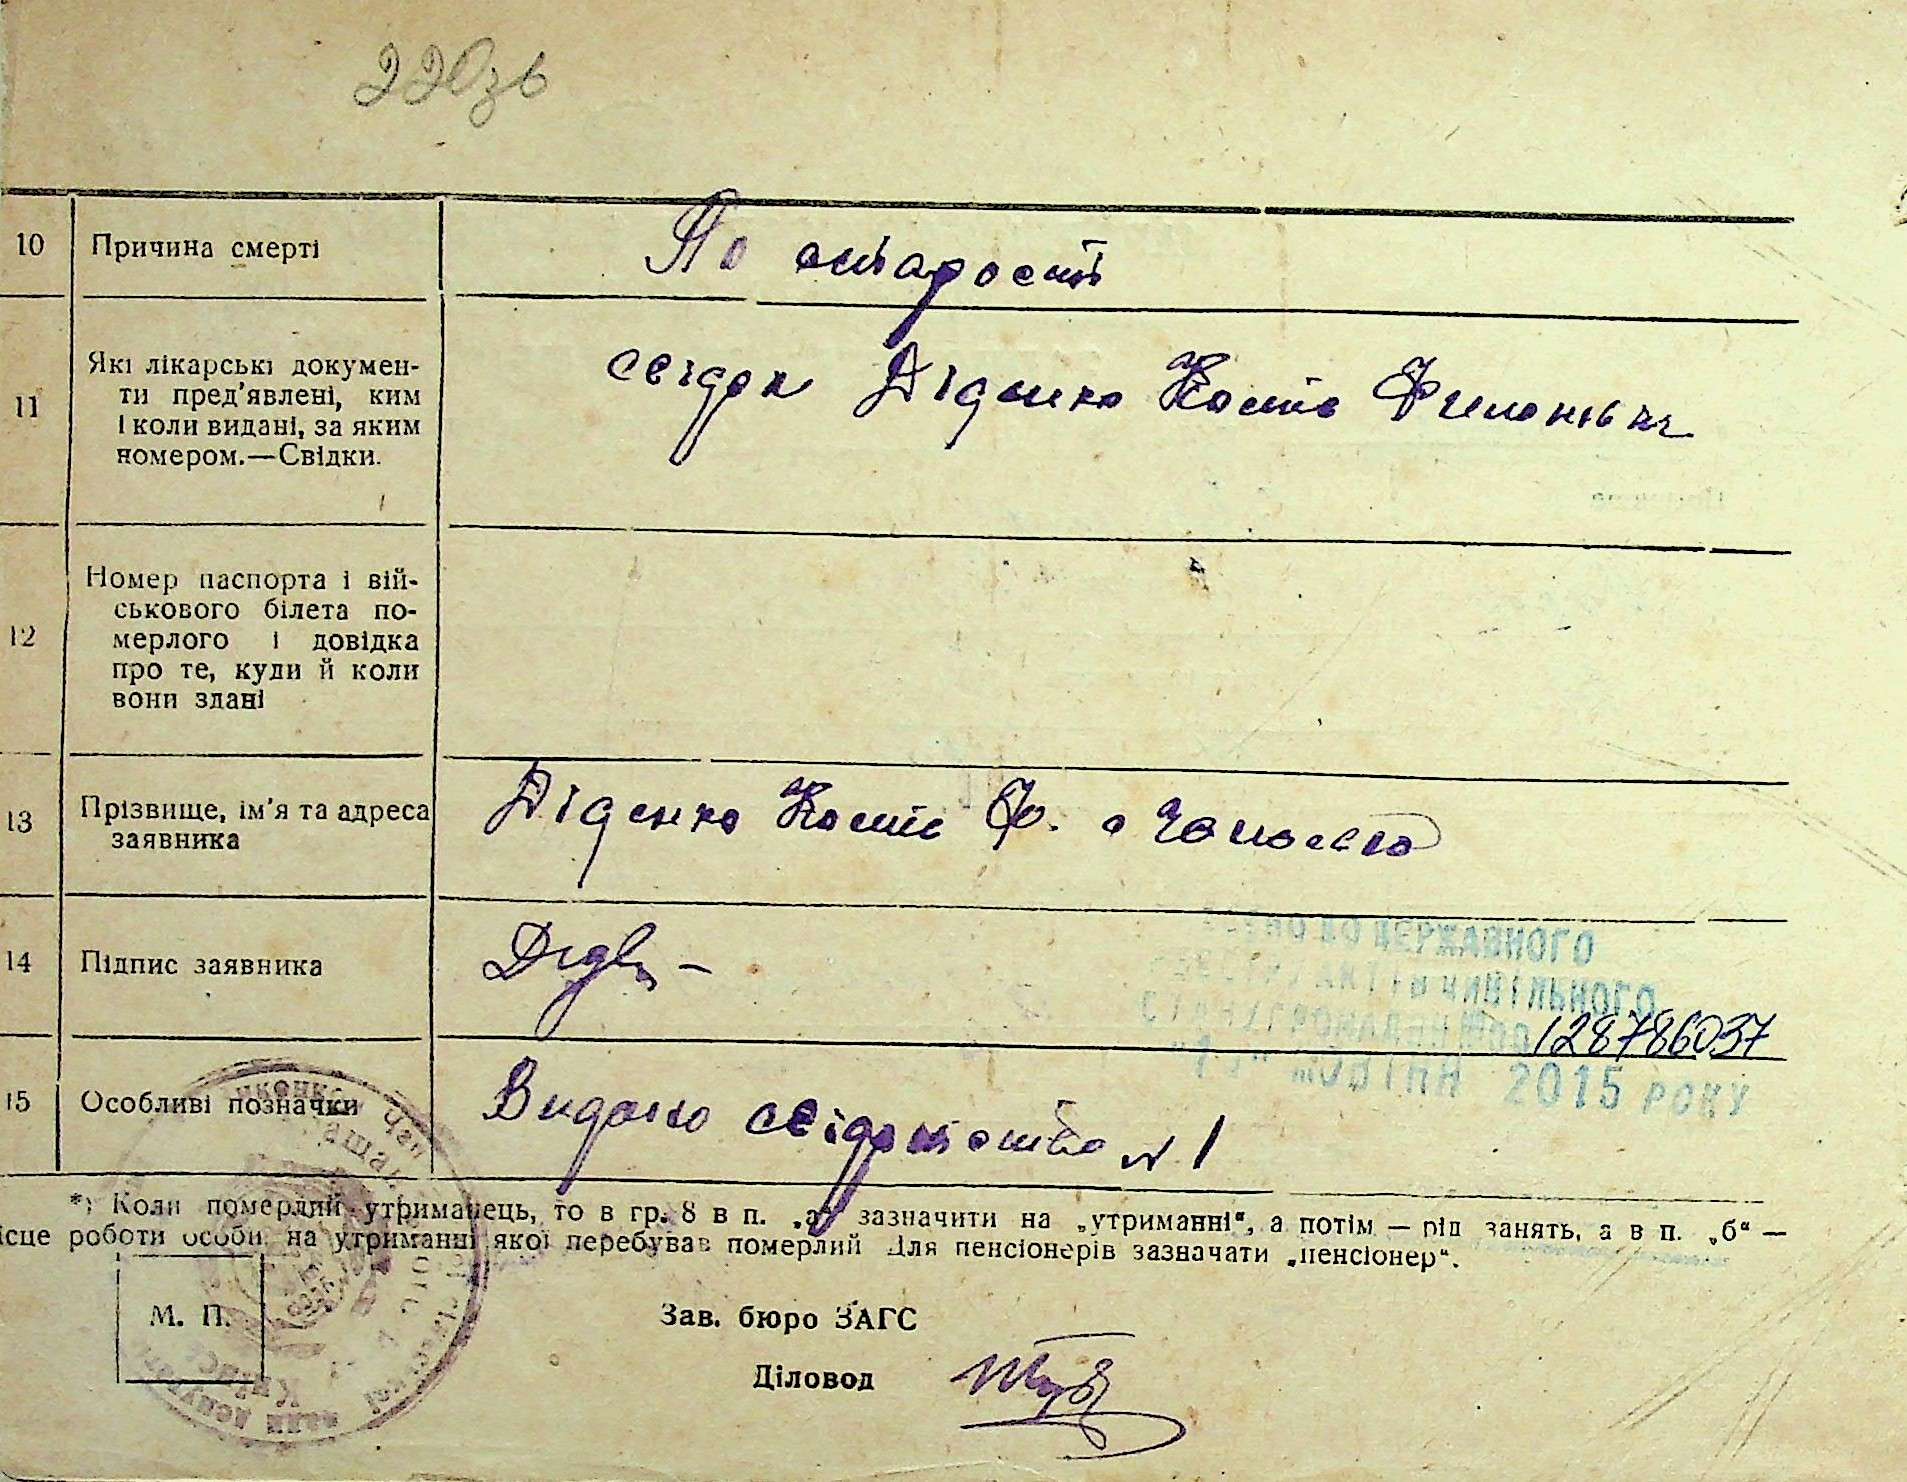 220зв
10 Причина смерті По старості
11 Які лікарські докумен-
ти пред'явлені, ким
і коли видані, за яким
номером.—Свідки.
свідок Діденко Костя Филонович
12 Номер паспорта і вій-
ськового білета по-
мерлого і довідка
про те, куди й коли
вони здані
13 Прізвище, ім'я та адреса
заявника
Діденко Костя Ф. с
14 Підпис заявника
ДО ДЕРЖАВНОГО
АКТІВ ЦИВІЛЬНОГО
128786037
2015 РОКУ
15 Особливі позначки Видано свідоцтво N 1
*) Коли померлий утриманець, то в гр. 8 в п. „а“ зазначити на „утриманні“, а потім — рід занять, а в п. „б“ —
ісце роботи особи, на утриманні якої перебував померлий Для пенсіонерів зазначати „пенсіонер“.
М. П.
Зав. бюро ЗАГС
Діловод